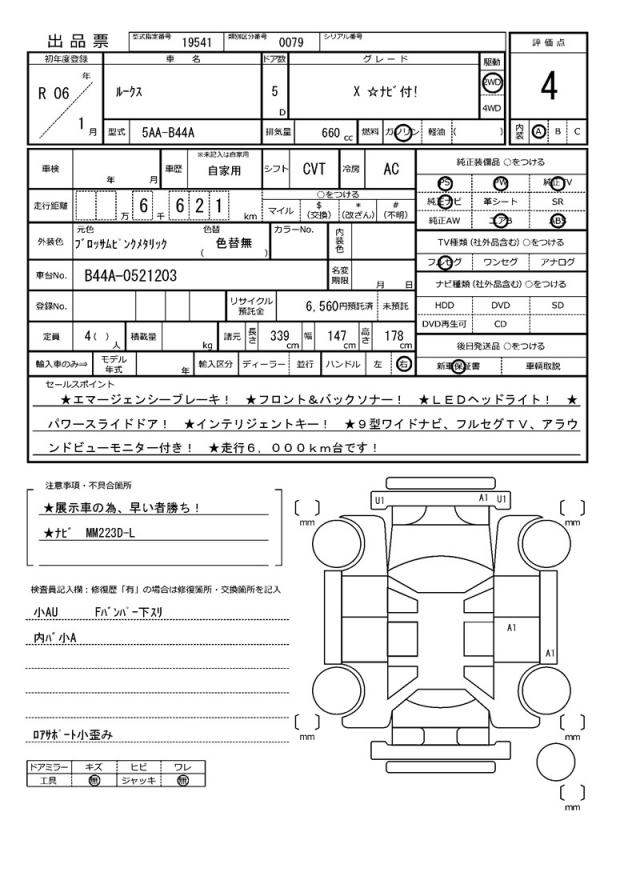 出品票 型式指定番号 19541 類別区分番号 0079 シリアル番号
評価点
4
内装 A B C
初年度登録 車名 ドア数 グレード 駆動
R 06 年 1 月
ルークス 5 D X ☆ナビ付! 2WD 4WD
型式 5AA-B44A 排気量 660 cc 燃料 ガソリン 軽油 ( )
車検 年 月 車歴 ※未記入は自家用 自家用 シフト CVT 冷房 AC
純正装備品 ○をつける
PS PW 純正TV
純正ナビ 革シート SR
純正AW エアB ABS
走行距離 万 6 千 6 2 1 km
○をつける
マイル $ (交換) * (改ざん) # (不明)
外装色 元色 ブロッサムピンクメタリック 色替 ( 色替無 ) カラーNo. 内装色
TV種類 (社外品含む) ○をつける
フルセグ ワンセグ アナログ
車台No. B44A-0521203 名変期限 月 日
ナビ種類 (社外品含む) ○をつける
HDD DVD SD
DVD再生可 CD
登録No. リサイクル預託金 6,560円預託済 未預託
定員 4 ( ) 人 積載量 kg 諸元 長さ 339 cm 幅 147 cm 高さ 178 cm
後日発送品 ○をつける
新車保証書 車輌取説
輸入車のみ⇒ モデル年式 年 輸入区分 ディーラー 並行 ハンドル 左 右
セールスポイント
★エマージェンシーブレーキ! ★フロント&バックソナー! ★LEDヘッドライト! ★
パワースライドドア! ★インテリジェントキー! ★9型ワイドナビ、フルセグTV、アラウ
ンドビューモニター付き! ★走行6,000km台です!
注意事項・不具合箇所
★展示車の為、早い者勝ち!
★ナビ MM223D-L
検査員記入欄:修復歴「有」の場合は修復箇所・交換箇所を記入
小AU Fバンパー下スリ
内バ小A
ロアサポート小歪み
ドアミラー キズ ヒビ ワレ
工具 無 ジャッキ 無
U1 A1 U1
mm mm
A1
A1
mm mm
mm